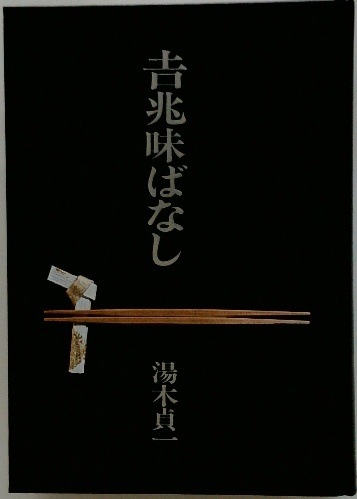 𠮷兆味ばなし
湯木貞一